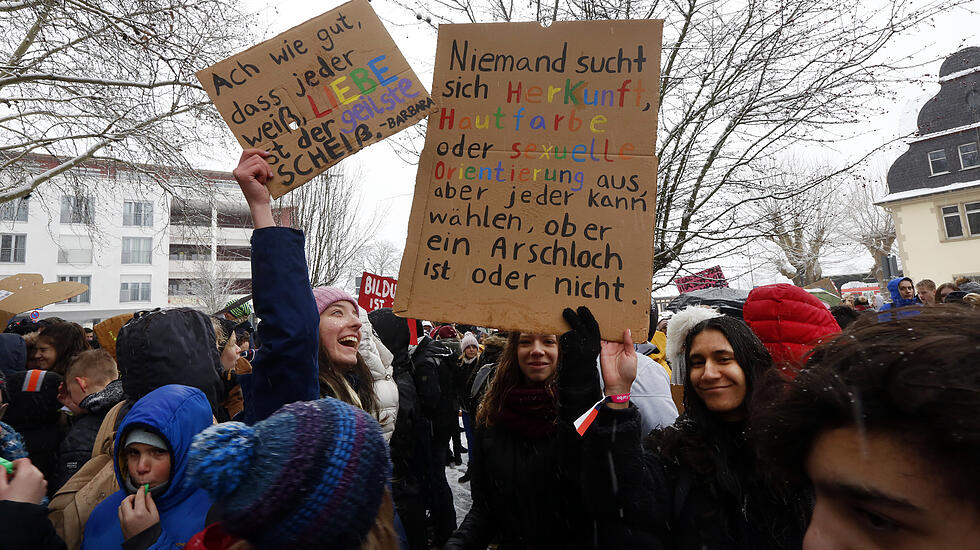 Ach wie gut,
dass jeder
weiß, LIEBE
ist der geilste
SCHEIß. -BARBARA
Niemand sucht
sich HerKunft,
Hautfarbe
oder sexuelle
Orientierung aus,
aber jeder kann
wählen, ober
ein Arschloch
ist oder nicht.
BILDU
IST